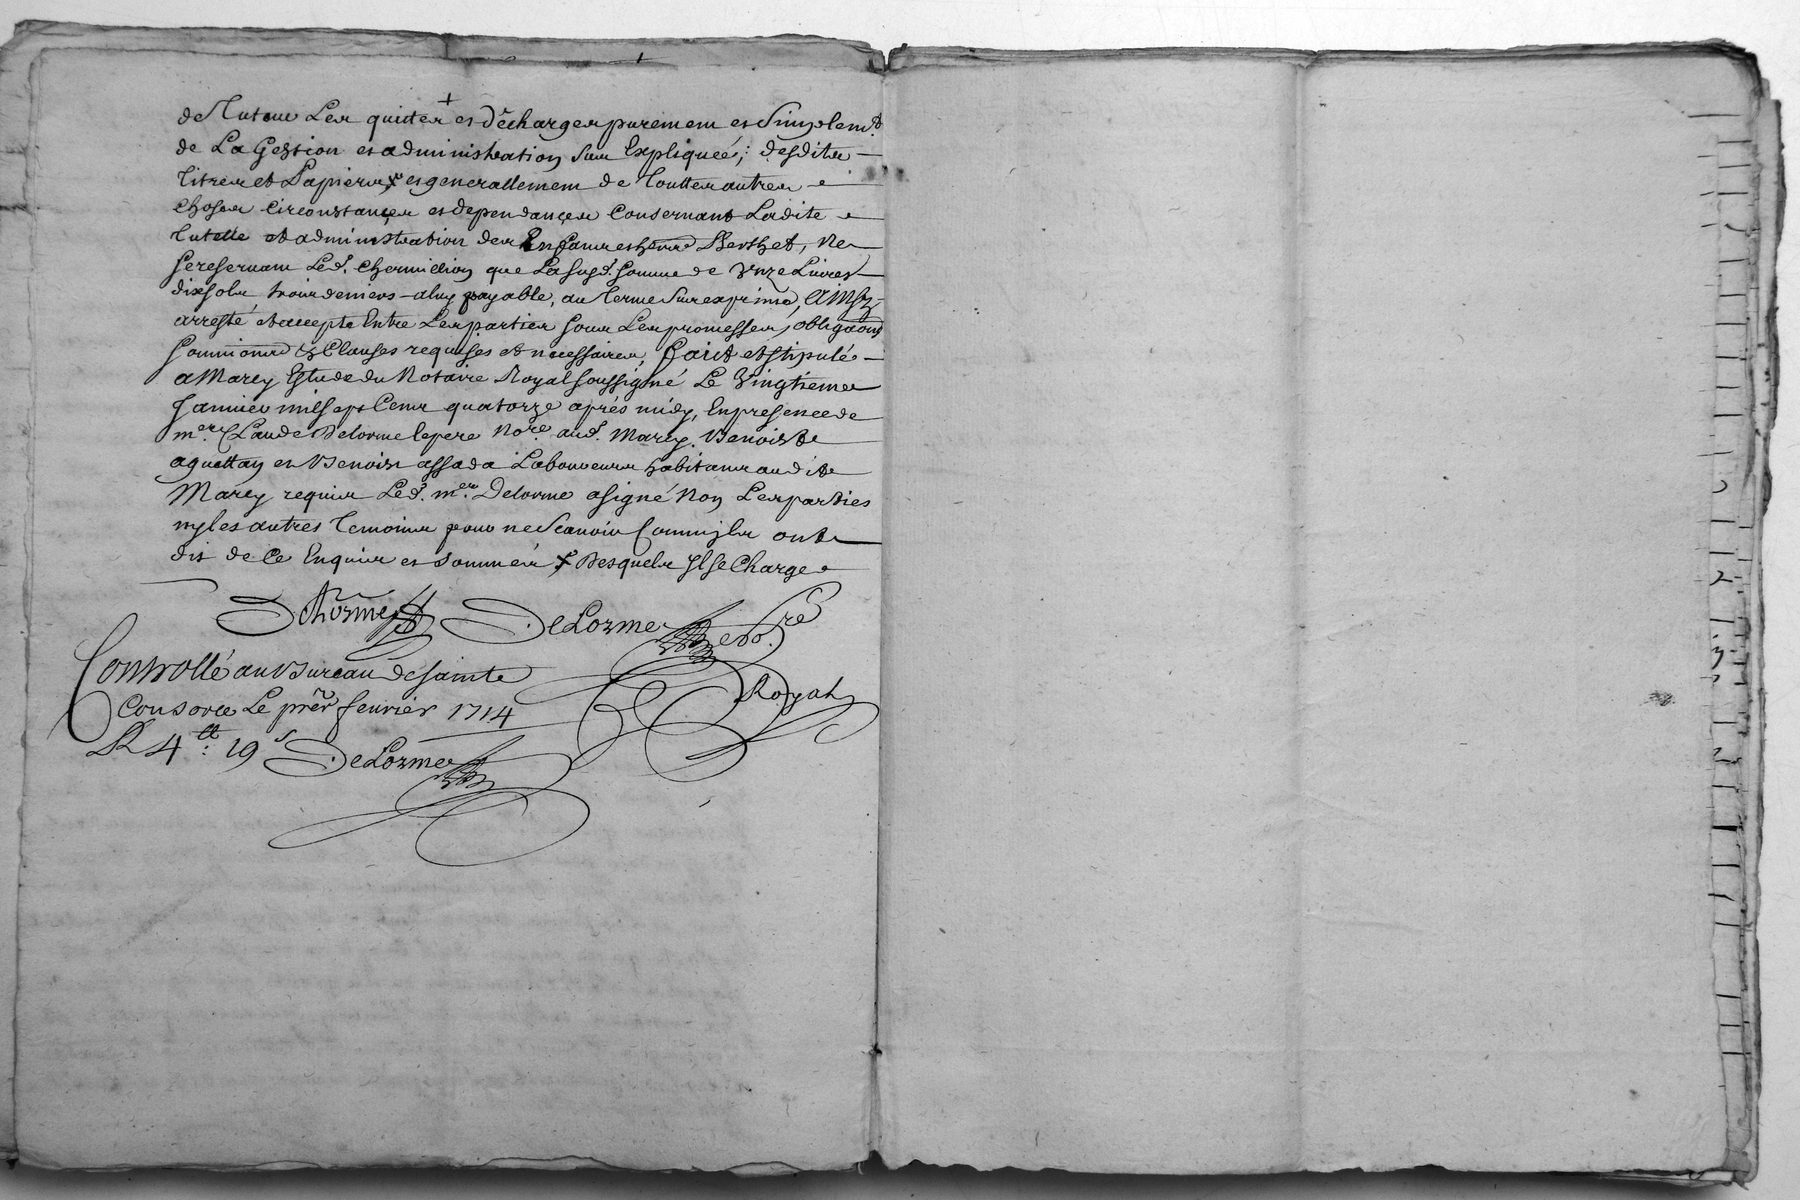 de Tuteur Les quitter et Décharger purement et Simplemt.
de La Gestion et administration sus Expliquée, desdits
titres et Papiers x et generallement de Touttes autres
choses circonstances et dependances Consernant Ladite
tutelle et administration des Enfans et heurs Berthet, ne
se reservant Led. Chermillion que La susd. somme de unze Livres
dix sols trois deniers a luy payable, au terme sus exprimé, Ainsy
arresté et accepté Entre Les parties sous Les promesses, obligaons
soumions & Clauses requises et necessaires, faict et stipulé
a Marcy Estude du Notaire Royal soussigné Le Vingtieme
Janvier mil sept Cens quatorze aprés midy, En presence de
mere. Claude Delorme le pere Nore. aud. Marcy. Benoist
aguettan et Benoist assada Laboureurs habitans audit
Marcy requis Led. mer. Delorme a signé Non Les parties
ny les autres temoins pour ne Scavoir Comm'ils ont
dit de Ce Enquis et sommés x Desquels Il se Charge
DeLorme DeLorme No.re
Royal
Controllé au Bureau de Sainte
Consorce Le pmer fevrier 1714
R 4 tt : 19 s DeLorme